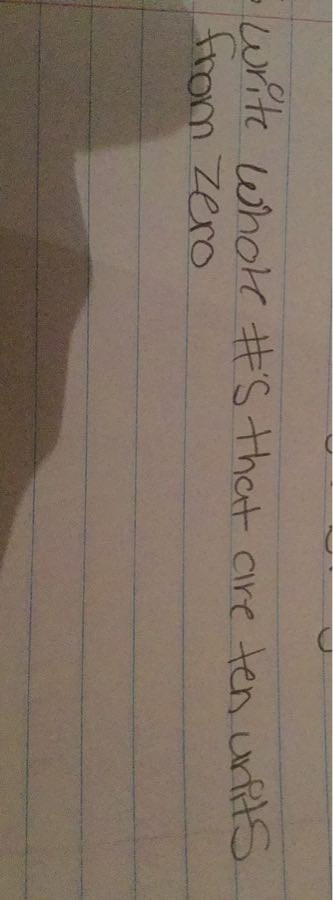 write whole #'s that are ten units
from zero